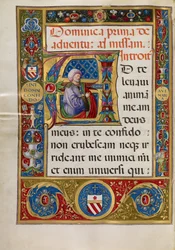 Dominica prima de
aduentu: ad missam.
Introit
D te
leuaui
animā
meam
deus
meus: in te confido
non erubescam neq; ir
rideant me inimici mei
et enim uniuersi qui: